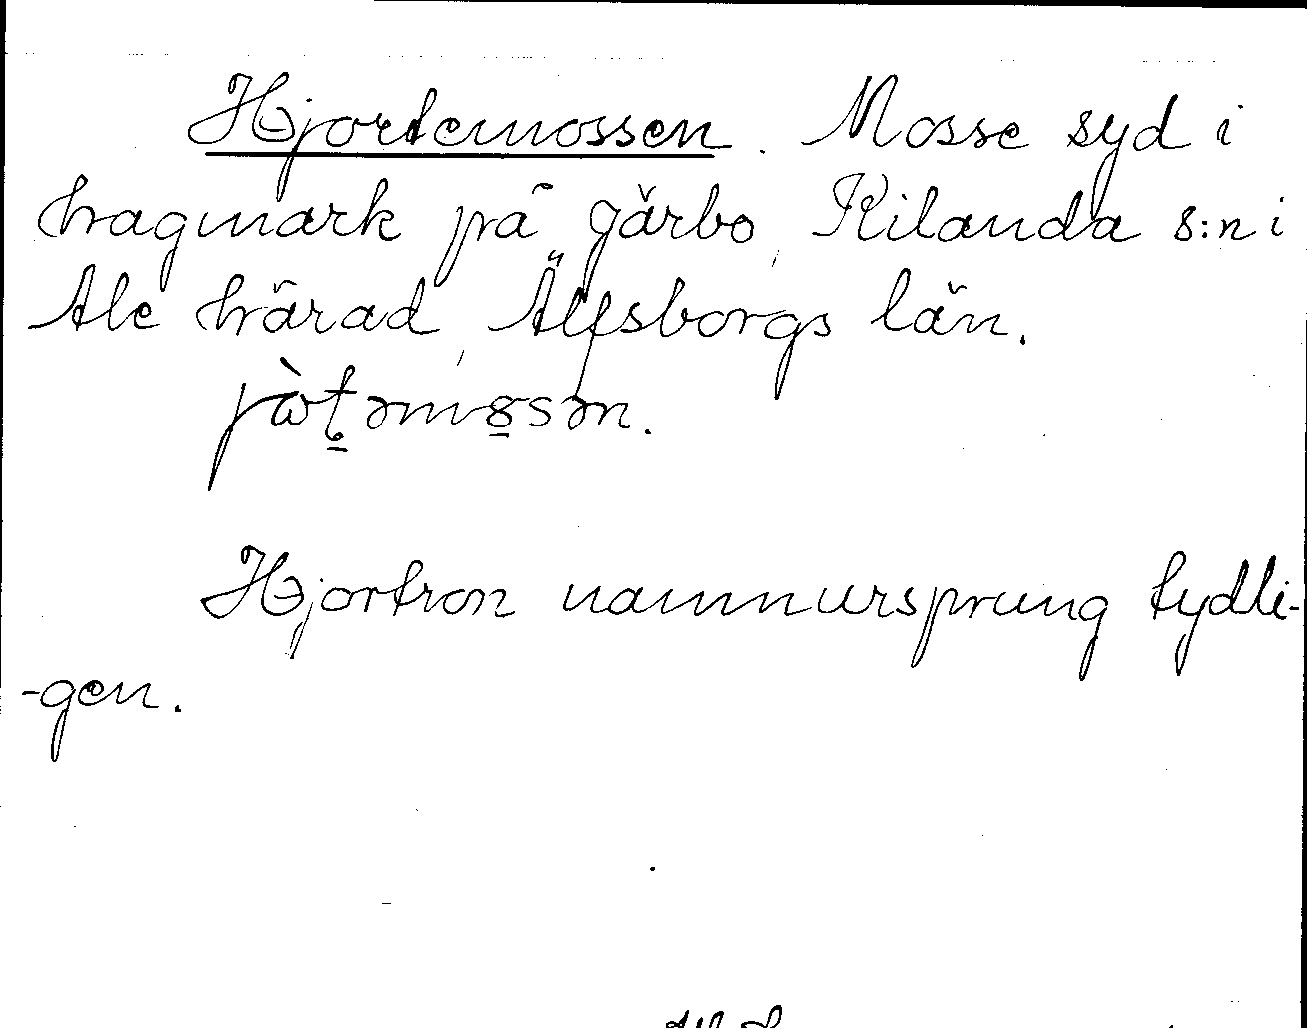 Hjortemossen. Mosse syd i
hagmark på gärbo, Kilanda s:n i
Ale härad, Älfsborgs län.

Hjortron namnursprung tydli-
-gen.